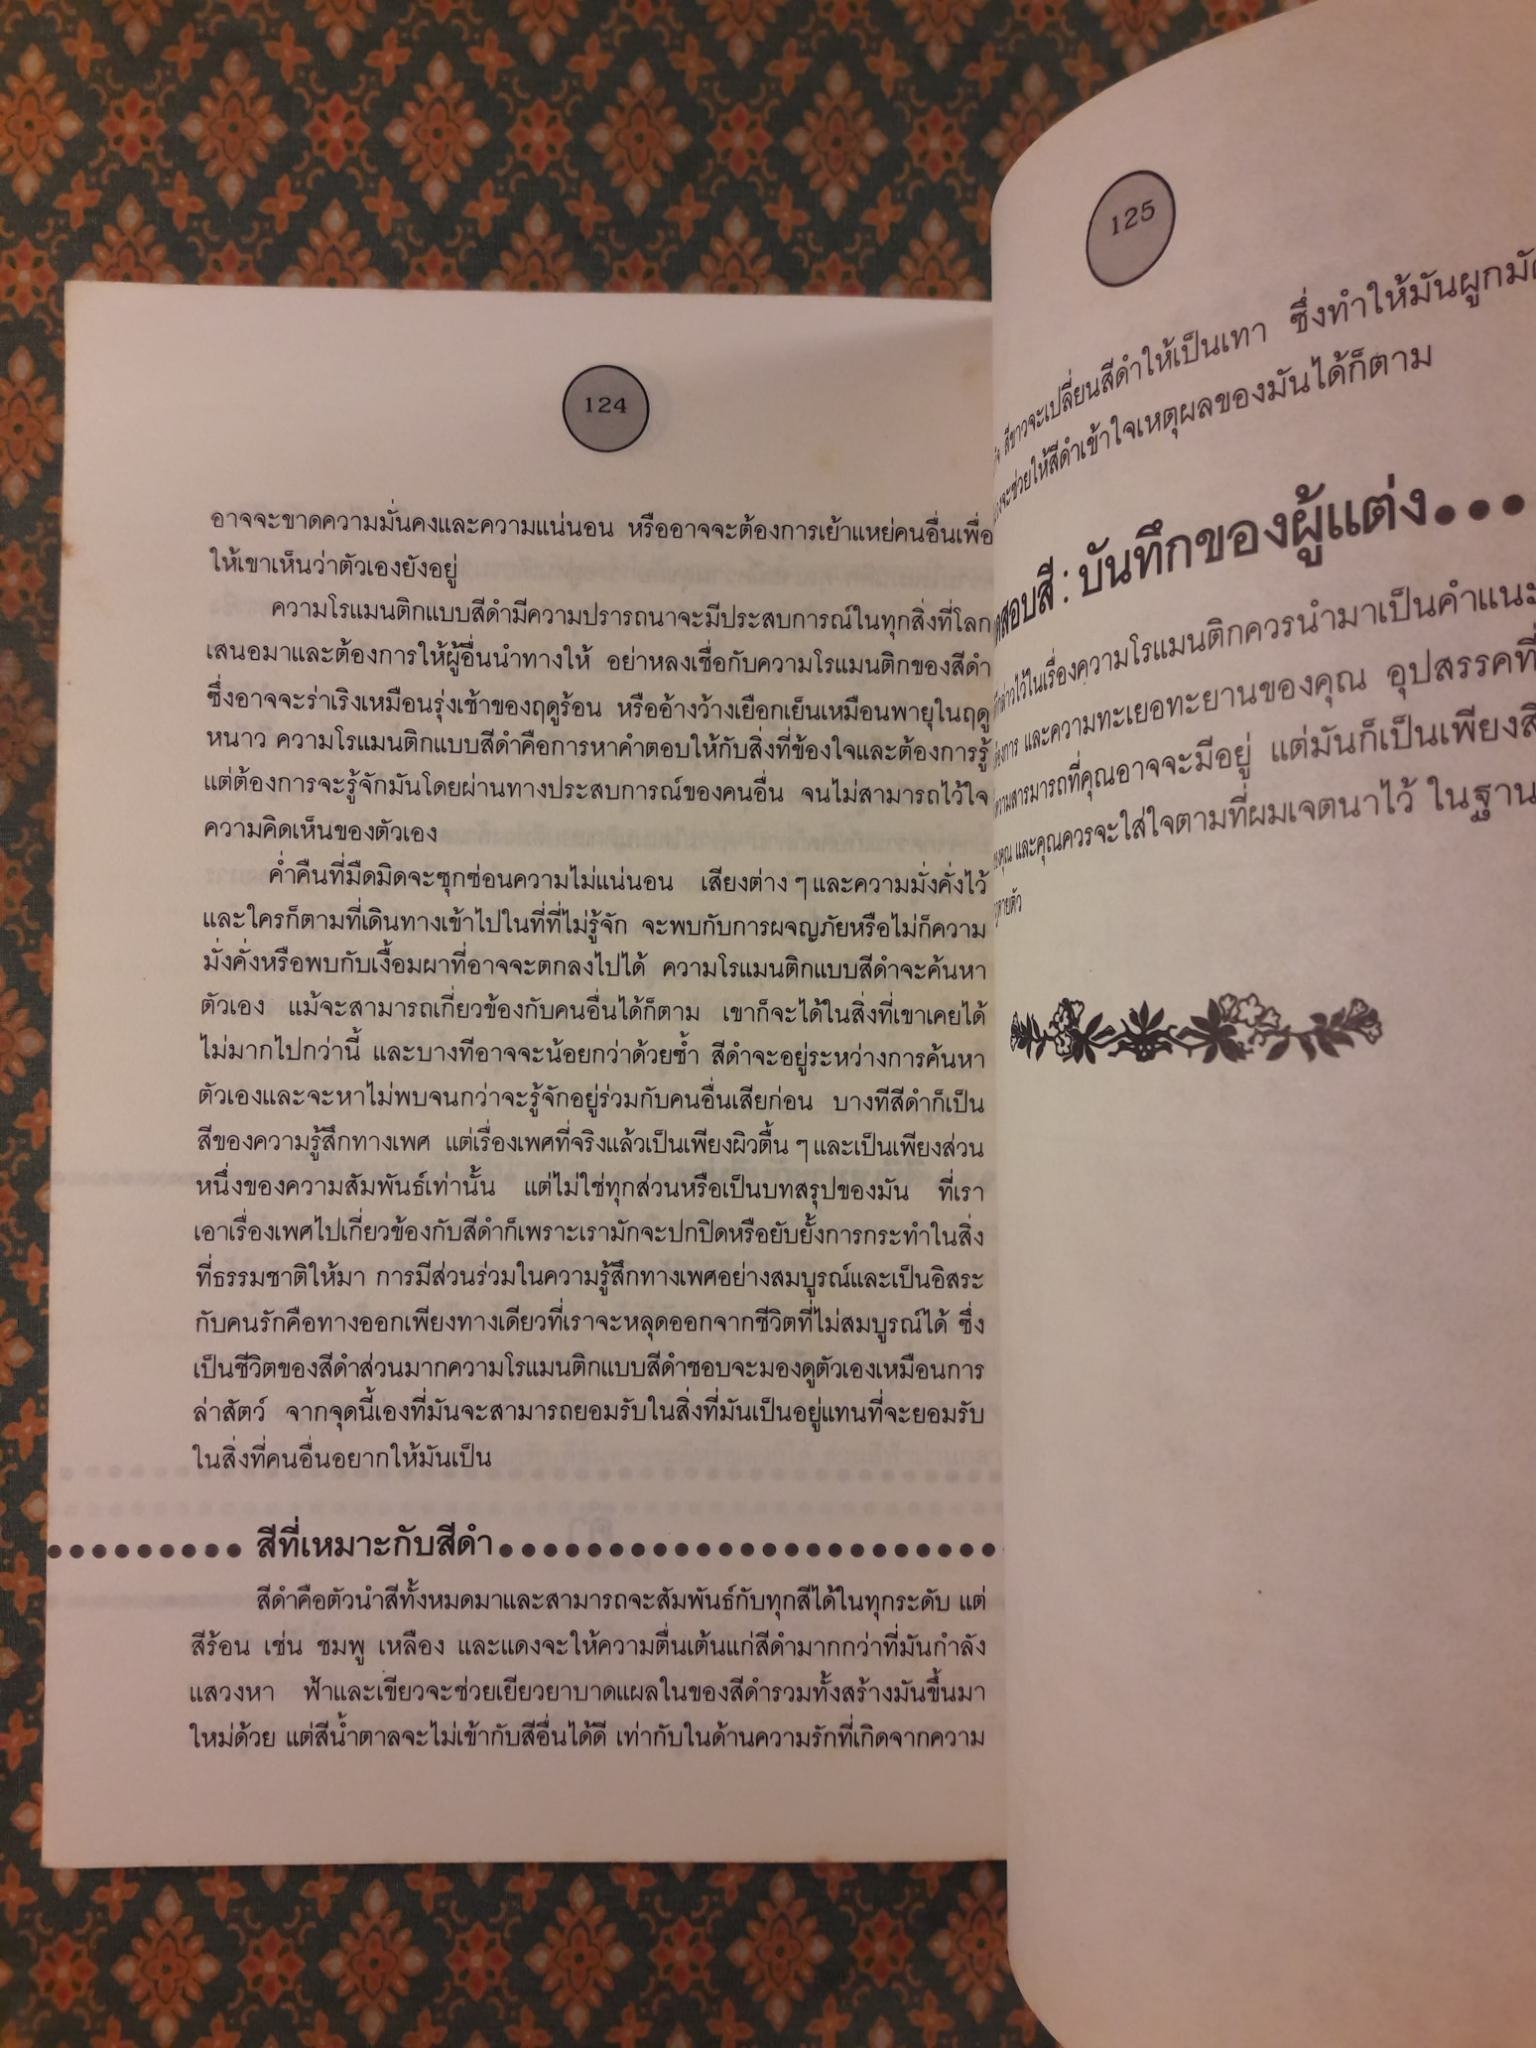 124
อาจจะขาดความมั่นคงและความแน่นอน หรืออาจจะต้องการเย้าแหย่คนอื่นเพื่อ
ให้เขาเห็นว่าตัวเองยังอยู่
ความโรแมนติกแบบสีดำมีความปรารถนาจะมีประสบการณ์ในทุกสิ่งที่โลก
เสนอมาและต้องการให้ผู้อื่นนำทางให้ อย่าหลงเชื่อกับความโรแมนติกของสีดำ
ซึ่งอาจจะร่าเริงเหมือนรุ่งเช้าของฤดูร้อน หรืออ้างว้างเยือกเย็นเหมือนพายุในฤดู
หนาว ความโรแมนติกแบบสีดำคือการหาคำตอบให้กับสิ่งที่ข้องใจและต้องการรู้
แต่ต้องการจะรู้จักมันโดยผ่านทางประสบการณ์ของคนอื่น จนไม่สามารถไว้ใจ
ความคิดเห็นของตัวเอง
ค่ำคืนที่มืดมิดจะซุกซ่อนความไม่แน่นอน เสียงต่าง ๆ และความมั่งคั่งไว้
และใครก็ตามที่เดินทางเข้าไปในที่ที่ไม่รู้จัก จะพบกับการผจญภัยหรือไม่ก็ความ
มั่งคั่งหรือพบกับเงื้อมผาที่อาจจะตกลงไปได้ ความโรแมนติกแบบสีดำจะค้นหา
ตัวเอง แม้จะสามารถเกี่ยวข้องกับคนอื่นได้ก็ตาม เขาก็จะได้ในสิ่งที่เขาเคยได้
ไม่มากไปกว่านี้ และบางทีอาจจะน้อยกว่าด้วยซ้ำ สีดำจะอยู่ระหว่างการค้นหา
ตัวเองและจะหาไม่พบจนกว่าจะรู้จักอยู่ร่วมกับคนอื่นเสียก่อน บางทีสีดำก็เป็น
สีของความรู้สึกทางเพศ แต่เรื่องเพศที่จริงแล้วเป็นเพียงผิวตื้น ๆ และเป็นเพียงส่วน
หนึ่งของความสัมพันธ์เท่านั้น แต่ไม่ใช่ทุกส่วนหรือเป็นบทสรุปของมัน ที่เรา
เอาเรื่องเพศไปเกี่ยวข้องกับสีดำก็เพราะเรามักจะปกปิดหรือยับยั้งการกระทำในสิ่ง
ที่ธรรมชาติให้มา การมีส่วนร่วมในความรู้สึกทางเพศอย่างสมบูรณ์และเป็นอิสระ
กับคนรักคือทางออกเพียงทางเดียวที่เราจะหลุดออกจากชีวิตที่ไม่สมบูรณ์ได้ ซึ่ง
เป็นชีวิตของสีดำส่วนมากความโรแมนติกแบบสีดำชอบจะมองดูตัวเองเหมือนการ
ล่าสัตว์ จากจุดนี้เองที่มันจะสามารถยอมรับในสิ่งที่มันเป็นอยู่แทนที่จะยอมรับ
ในสิ่งที่คนอื่นอยากให้มันเป็น
สีที่เหมาะกับสีดำ
สีดำคือตัวนำสีทั้งหมดมาและสามารถจะสัมพันธ์กับทุกสีได้ในทุกระดับ แต่
สีร้อน เช่น ชมพู เหลือง และแดงจะให้ความตื่นเต้นแก่สีดำมากกว่าที่มันกำลัง
แสวงหา ฟ้าและเขียวจะช่วยเยียวยาบาดแผลในของสีดำรวมทั้งสร้างมันขึ้นมา
ใหม่ด้วย แต่สีน้ำตาลจะไม่เข้ากับสีอื่นได้ดี เท่ากับในด้านความรักที่เกิดจากความ
125
สีขาวจะเปลี่ยนสีดำให้เป็นเทา ซึ่งทำให้มันผูกมัด
จะช่วยให้สีดำเข้าใจเหตุผลของมันได้ก็ตาม
สอบสี : บันทึกของผู้แต่ง...
กล่าวไว้ในเรื่องความโรแมนติกควรนำมาเป็นคำแนะ
และความทะเยอทะยานของคุณ อุปสรรคที่
ความสามารถที่คุณอาจจะมีอยู่ แต่มันก็เป็นเพียงสิ
คุณ และคุณควรจะใส่ใจตามที่ผมเจตนาไว้ ในฐาน
ตายตัว